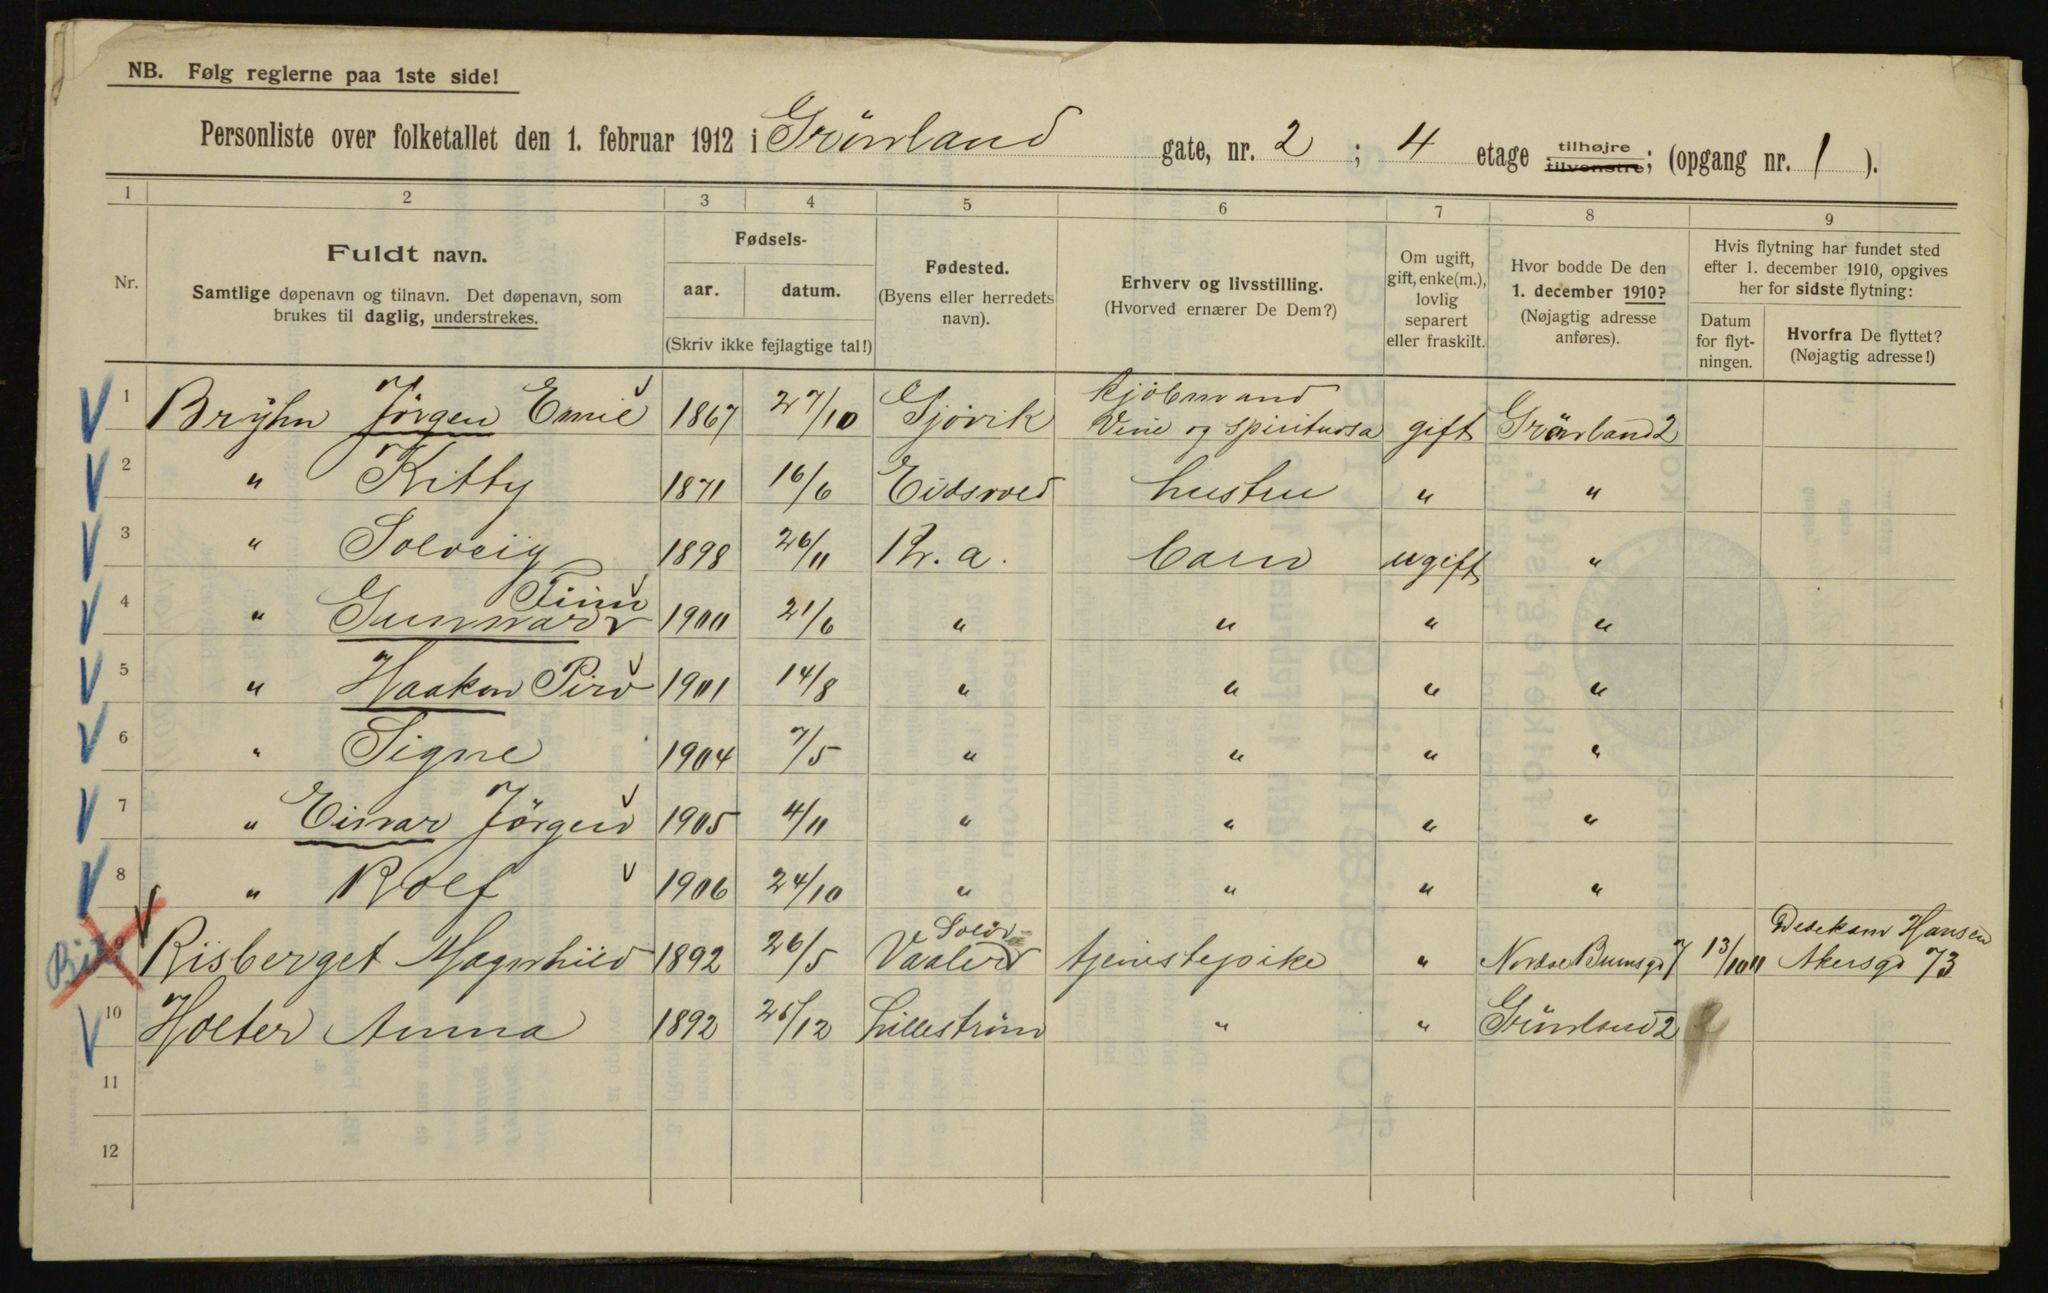 NB. Følg reglerne paa 1ste side!
Personliste over folketallet den 1. februar 1912 i Grönland gate, nr. 2 ; 4 etage tilhøjre tilvenstre; (opgang nr. 1 ).
1 2 3 4 5 6 7 8 9
Nr.
Fuldt navn.
Samtlige døpenavn og tilnavn. Det døpenavn, som
brukes til daglig, understrekes.
Fødsels-
aar. datum.
(Skriv ikke fejlagtige tal!)
Fødested.
(Byens eller herredets
navn).
Erhverv og livsstilling.
(Hvorved ernærer De Dem?)
Om ugift,
gift, enke(m.),
lovlig
separert
eller fraskilt.
Hvor bodde De den
1. december 1910?
(Nøjagtig adresse
anføres).
Hvis flytning har fundet sted
efter 1. december 1910, opgives
her for sidste flytning:
Datum
for flyt-
ningen.
Hvorfra De flyttet?
(Nøjagtig adresse!)
1 Bryhn Jörgen Emil 1867 27/10 Gjövik Kjöbmand Vine og spirituosa gift Grönland 2
2 " Kitty 1871 16/6 Eidsvold hustru " "
3 " Solveig 1898 26/11 Kr. a. barn ugift "
4 " Gunnar Finn 1900 21/6 " " " "
5 " Haakon 1901 14/8 " " " "
6 " Signe 1904 7/5 " " " "
7 " Einar Jörgen 1905 4/11 " " " "
8 " Rolf 1906 24/10 " " " "
9 Risberget Magnhild 1892 26/5 Vaaler Solör tjenestepike " Nordre 7 13/10 11 Hansen Akersg 73
10 Holter Anna 1892 25/12 Lillestrøm " " Grönland 2
11
12